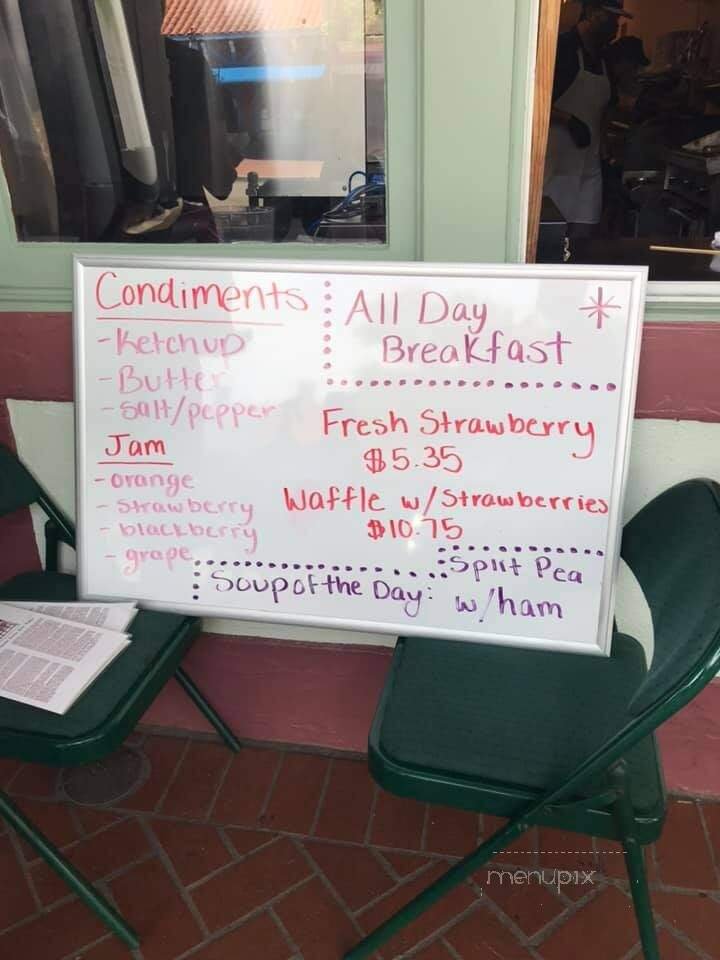 Condiments
-Ketchup
-Butter
-Salt/pepper
Jam
-orange
-strawberry
-blackberry
-grape
All Day
Breakfast
Fresh Strawberry
$5.35
Waffle w/Strawberries
$10.75
Soup of the Day: Split Pea
w/ham
menupix